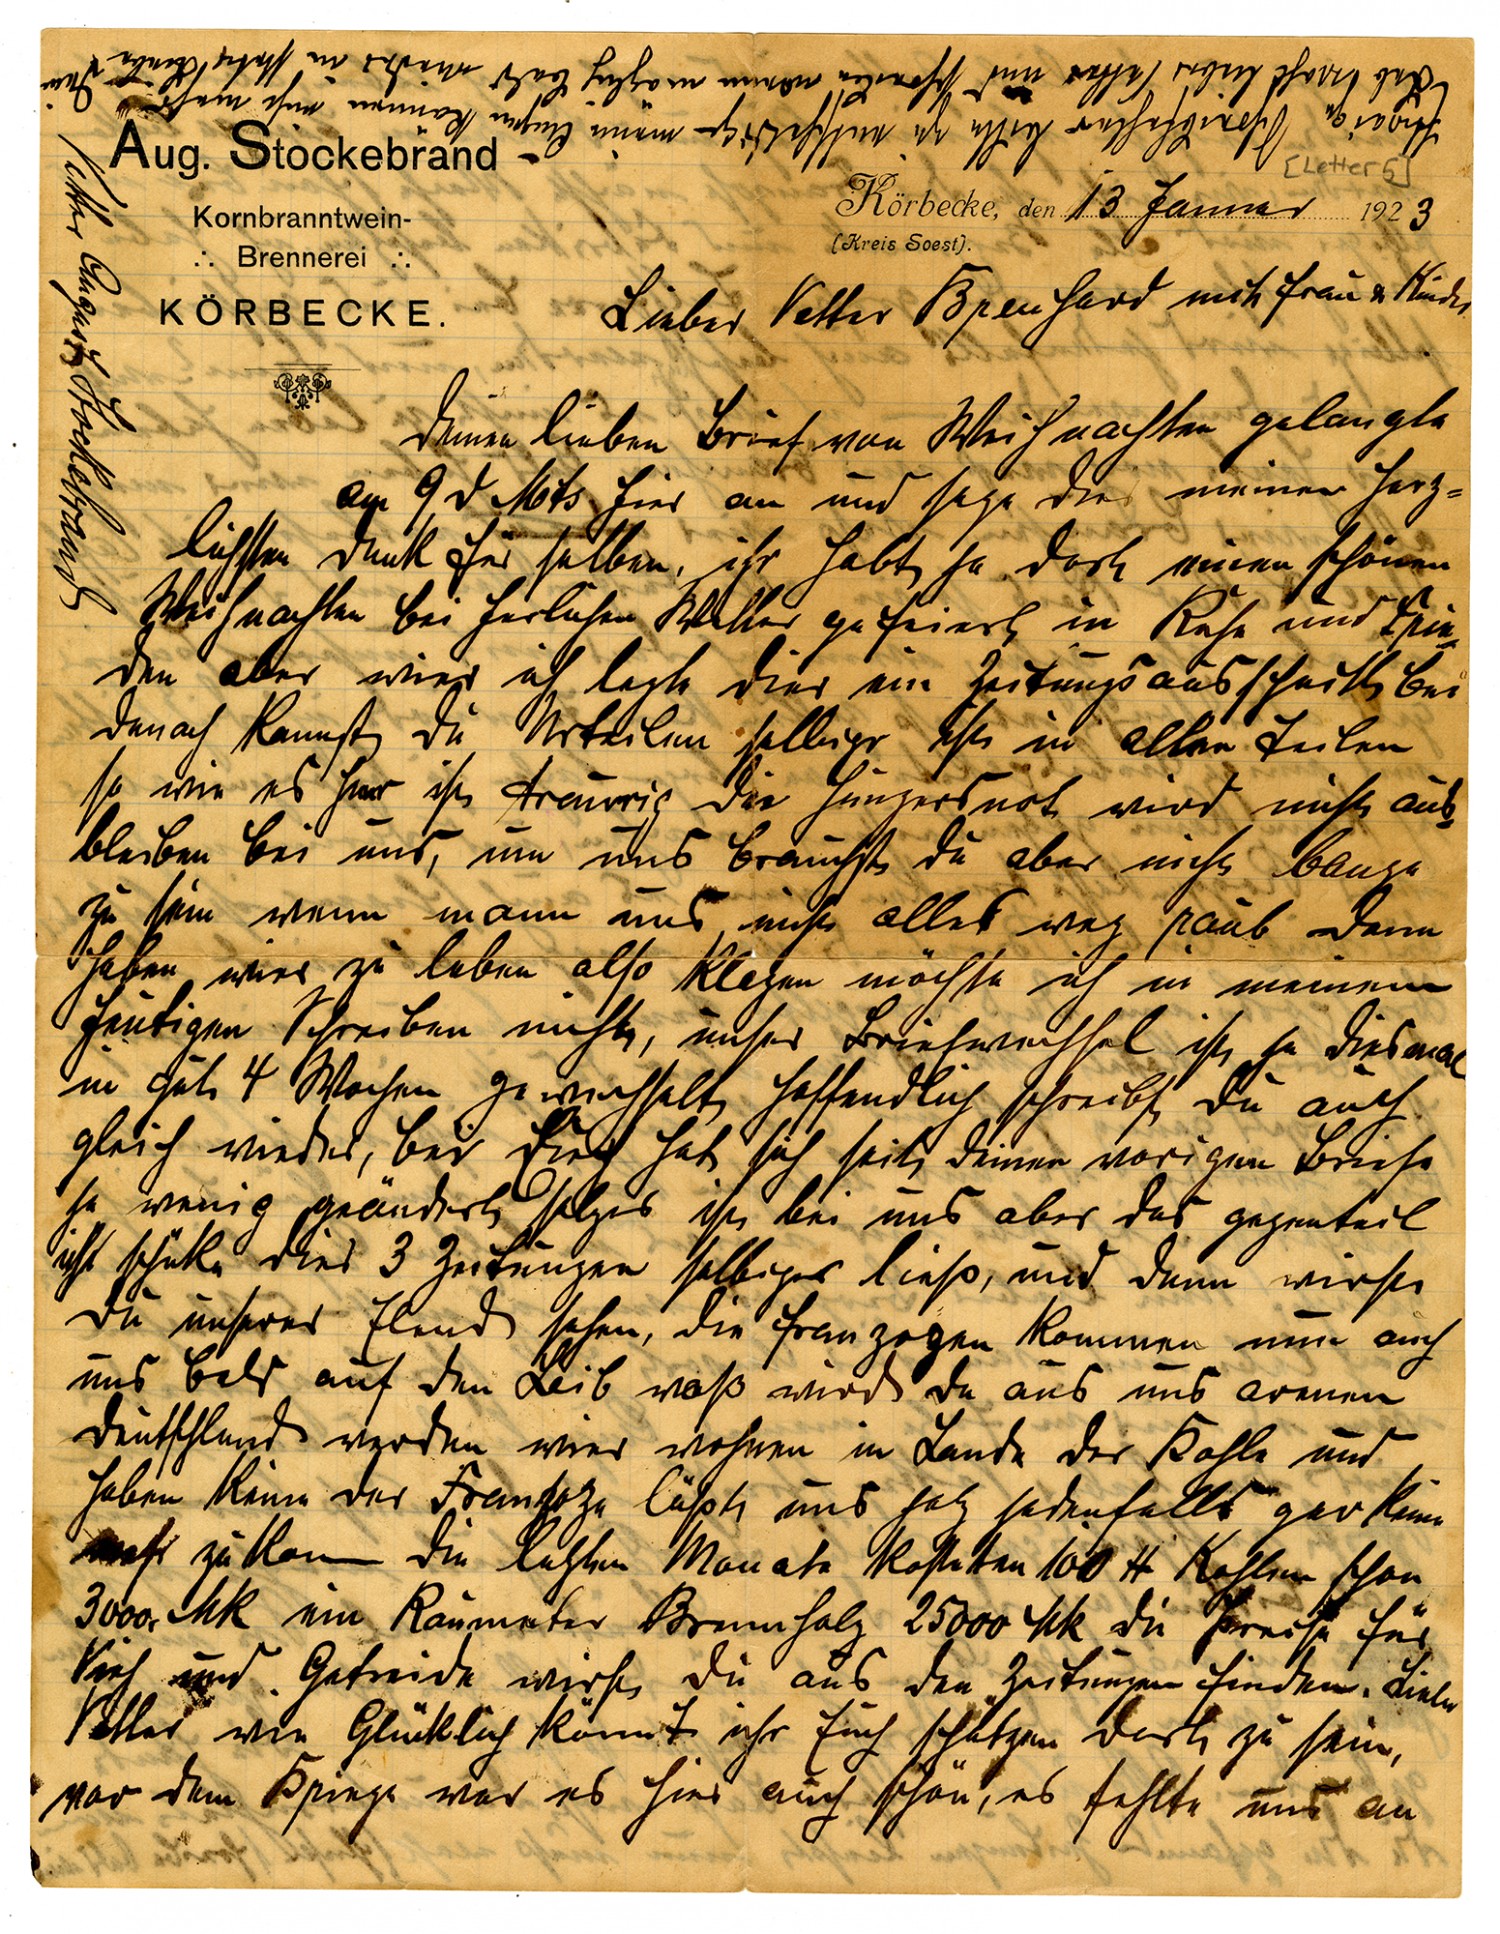 Aug. Stockebrand
Kornbranntwein-
∴ Brennerei ∴
KÖRBECKE.
[Letter 5]
Körbecke, den 13 Januar 1923
(Kreis Soest).
Lieber Vetter Bernhard mit Frau u Kinder
Deinen lieben Brief von Weihnachten gelangte
am 9 d Mts hier an und sage dir meinen herz=
lichsten Dank für selben, ihr habt ja dort einen schönen
Weihnachten bei herlichen Wetter gefeiert in Ruhe und Frie=
den aber wier ich legte dier ein Zeitungsausschnitt bei
danach kannst du Urteilen selbiger ist in allen Teilen
so wie es hier ist traurig die Hungersnot wird nicht aus=
bleiben bei uns, um uns brauchst du aber nicht bange
zu sein wenn mann uns nicht alles weg raub dann
haben wier zu leben also Klagen möchte ich in meinem
heutigen Schreiben nicht, unser Briefwechsel ist ja diesmal
in gut 4 Wochen gewechselt hoffendlich schreibst du auch
gleich wieder, bei hat sich seit deinen vorigen Briefe
ja wenig geändert ist bei uns aber das gegenteil
ich schike dier 3 Zeitungen selbiger ließ, und dann wirst
du unserer Elend sehen, die Franzozen kommen nun auch
uns bald auf den Leib waß wird da aus uns armen
Deutschland werden wier wohnen in Lande der Kohle und
haben keine der Franzoze läßt uns jetz jedenfalls gar keine
mehr zu kom die letzten Monate kosteten 100 ℔ Kohlen schon
3000, Mk ein Raumeter Brennholz 25000 Mk die Preise für
Vieh und Getreide wirst du aus den Zeitungen finden. Lieber
Vetter wie Glücklich könnt ihr Euch schätzen dort zu sein,
vor dem Kriege war es hier auch schön, es fehlte uns an
Schreibfehler bitte zu entschuldigen meine Augen können nicht mehr
Leb wohl lieber Vetter und schreibe wenn möglich bald wieder Dein
Vetter August Stockebrand